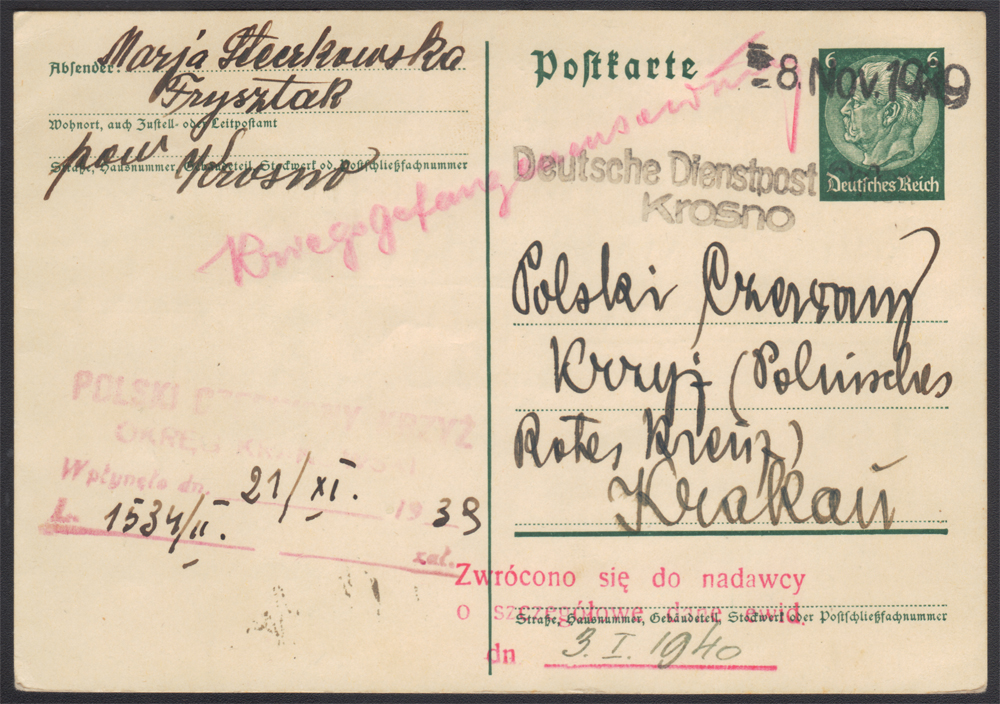 Absender: Marja Steczkowska
Frysztak
Wohnort, auch Zustell- oder Leitpostamt
pow Krosno
Straße, Hausnummer, Gebäudeteil, Stockwerk od. Postschließfachnummer
Postkarte
8. Nov. 1939
6 6
Deutsches Reich
Deutsche Dienstpost
Krosno
Kriegsgefang
Polski Czerwony
Krzyż (Polnisches
Rotes Kreuz)
Krakau
POLSKI CZERWONY KRZYŻ
OKRĘG KRAKOWSKI
Wpłynęło dn. 21/XI. 1939
L. 1534/II. zał.
Zwrócono się do nadawcy
o szczegółowe dane ewid.
Straße, Hausnummer, Gebäudeteil, Stockwerk oder Postschließfachnummer
dn 3. I. 1940